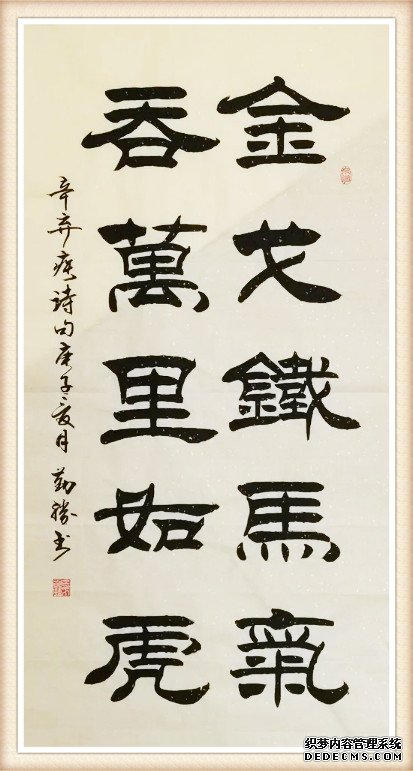 金戈鐵馬氣
吞萬里如虎
辛弃疾詩句庚子夏月 勤勝书
织梦内容管理系统
DEDECMS.COM